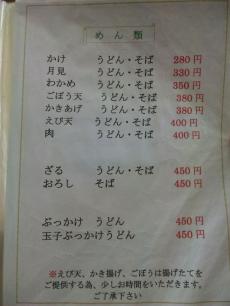 めん類
かけ うどん・そば 280円
月見 うどん・そば 330円
わかめ うどん・そば 350円
ごぼう天 うどん・そば 380円
かきあげ うどん・そば 380円
えび天 うどん・そば 400円
肉 うどん・そば 400円
ざる うどん・そば 450円
おろし そば 450円
ぶっかけ うどん 450円
玉子ぶっかけうどん 450円
※えび天、かき揚げ、ごぼうは揚げたてを
ご提供する為、少しお時間をいただきます。
ご了承下さい